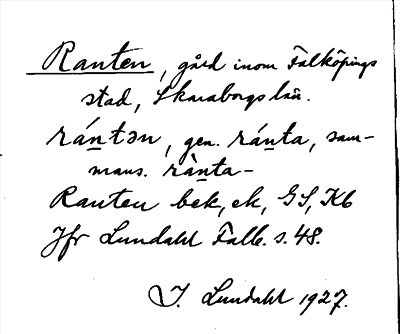 Ranten, gård inom Falköpings
stad, Skaraborgs län.
rántən, gen. ránta, sam-
mans. rànta-
Ranten bek, ek, GS, Kb
Jfr Lundahl Falb. s. 48.
I. Lundahl 1927.